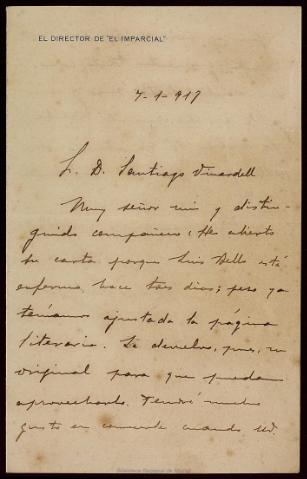 EL DIRECTOR DE "EL IMPARCIAL"
7-1-917
S. D. Santiago Vinardell
Muy señor mio y distin-
guido compañero: He abierto
su carta porque Luis Bello está
enfermo, hace tres dias; pero ya
teníamos ajustada la página
literaria. Le devuelvo, pues, su
original para que puedan
aprovecharlo. Tendré mucho
gusto en conocerle cuando Vd.
Biblioteca Nacional de Madrid